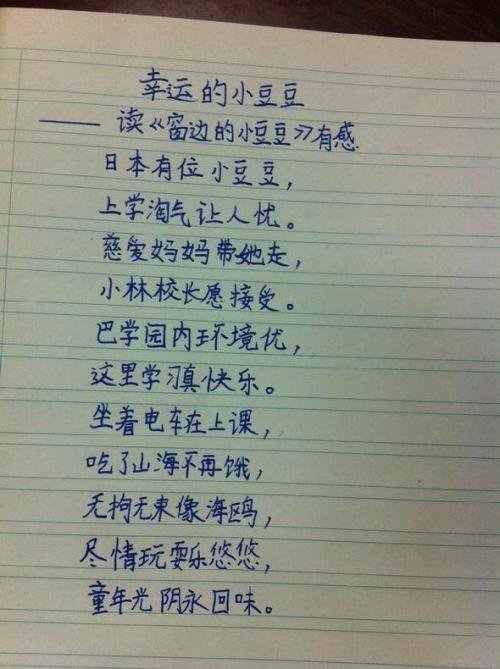 幸运的小豆豆
——读《窗边的小豆豆》有感
日本有位小豆豆，
上学淘气让人忧。
慈爱妈妈带她走，
小林校长愿接受。
巴学园内环境优，
这里学习真快乐。
坐着电车在上课，
吃了山海不再饿，
无拘无束像海鸥，
尽情玩耍乐悠悠，
童年光阴永回味。